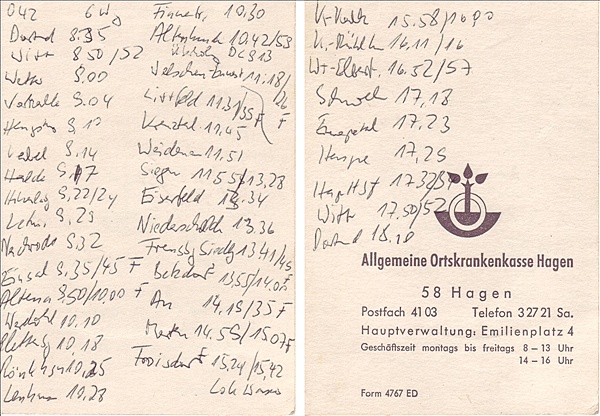 042 6 W
Dortmd 8.35
Witt 8 50/52
Wetter 9.00
Vorhalle 9.04
Hengstey 9.12
Kabel 9.14
Halde 9.17
Hohenlbg 9.22/24
Letm. 9.29
Nachrodt 9.32
Einsal 9.35/45 F
Altena 9.50/10.00 F
Werdohl 10.10
Plettbg 10.18
Rönkhsn 10.25
Lenhsn 10.28
Finnentr. 10.30
Altenhunde 10.42/53
Welschen Ennest 11.18/26 F
Littfeld 11.31/35 F
Kreuztal 11.45
Weidenau 11.51
Siegen 11.55/13.28
Eiserfeld 13.34
Niederscheld 13.36
Freusbg Siedlg 13 41/45
Betzdorf 13.55/14.02 F
Au 14.19/35 F
Merten 14.59/15.07 F
Troisdorf F 15.24/15.42
Lok Wasser
K-Kalk 15.58/16 00
K.-Mülh 16.11/16
Wt-Elberf. 16.52/57
Schwelm 17.18
Ennepetal 17.23
Haspe 17.29
Hag Hbf 17 32/37
Witt 17.50/52
Dortmd 18.10
Allgemeine Ortskrankenkasse Hagen
58 Hagen
Postfach 41 03 Telefon 3 27 21 Sa.
Hauptverwaltung: Emilienplatz 4
Geschäftszeit montags bis freitags 8 – 13 Uhr
14 – 16 Uhr
Form 4767 ED